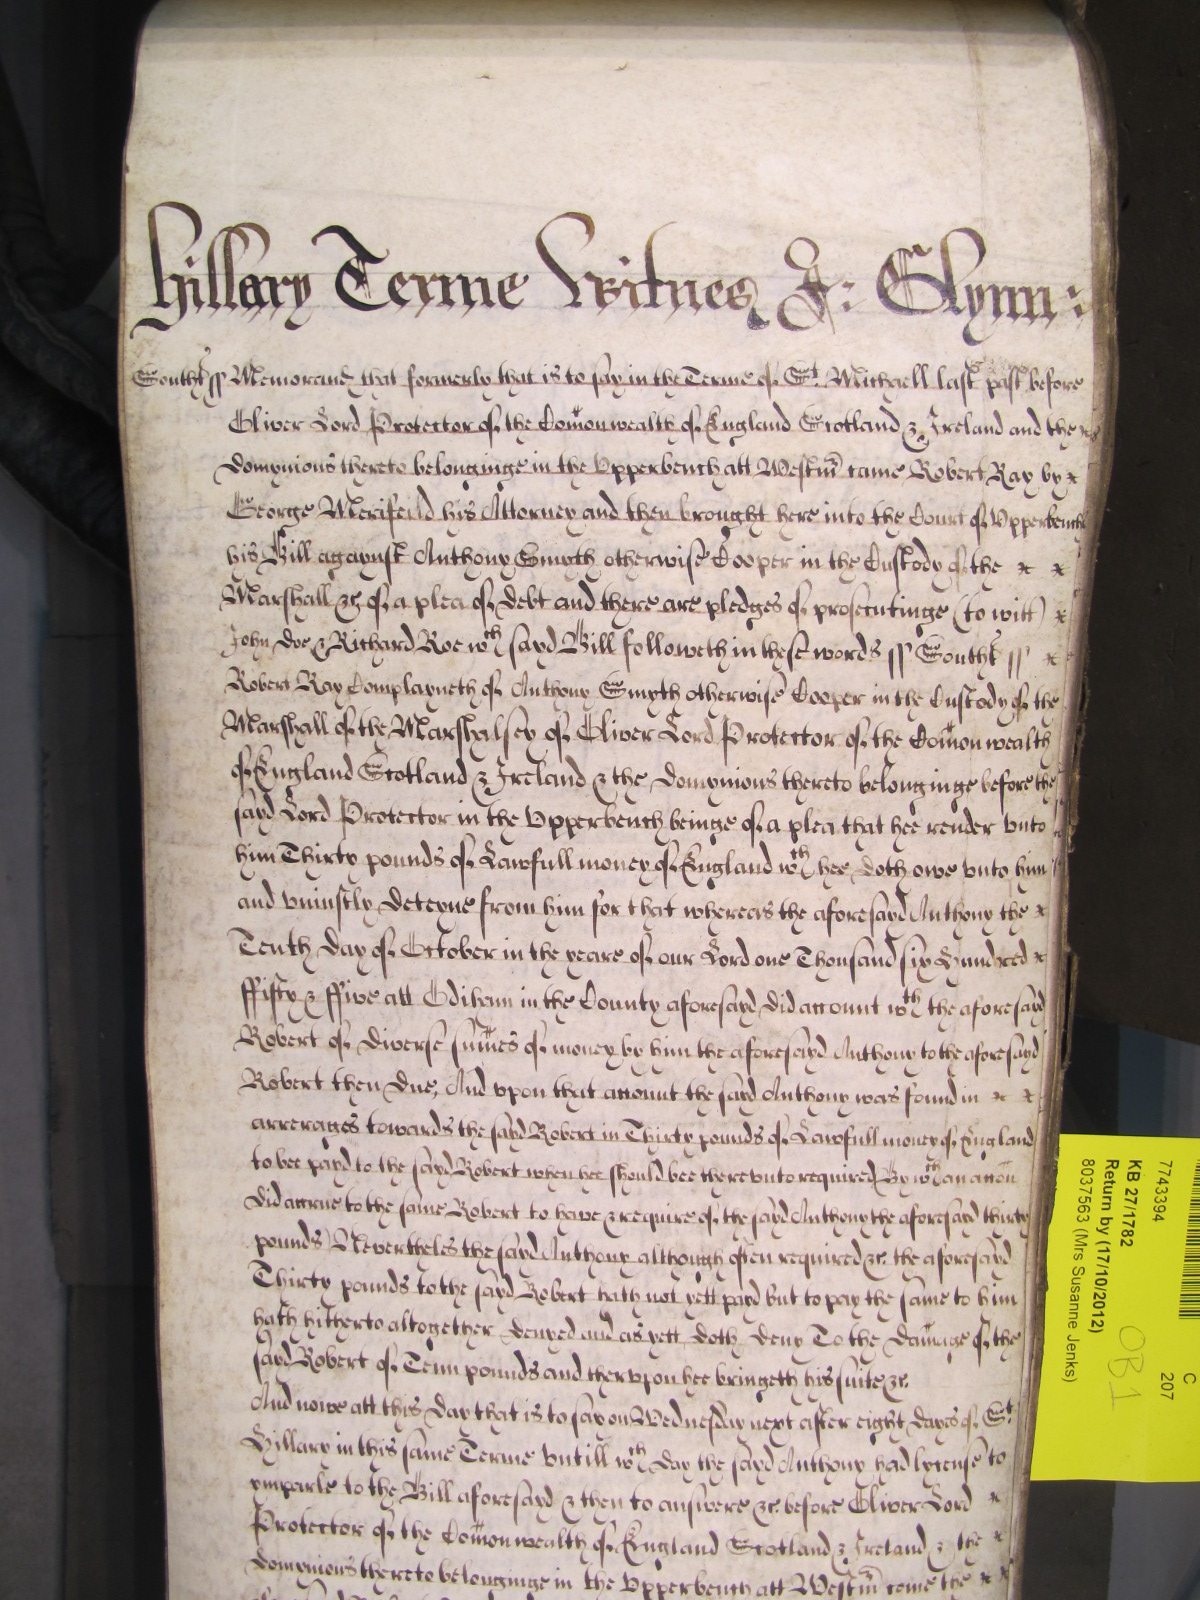 Hillary Terme Witnes J: Glynn:
Southt ss Memorand that formerly that is to say in the Terme of St Michaell last past before
Oliver Lord Protector of the Com̃onwealth of England Scotland & Ireland and the
domynions thereto belonginge in the Upperbench att Westm̃ came Robert Ray by
George Merifeild his Attorney and then brought here into the Court of Upperbench
his Bill agaynst Anthony Smyth otherwise Cooper in the Custody of the
Marshall &c of a plea of debt and there are pledges of prosecutinge (to witt)
John Doe & Richard Roe wch sayd Bill followeth in these words ss Southt ss
Robert Ray Complayneth of Anthony Smyth otherwise Cooper in the Custody of the
Marshall of the Marshalsey of Oliver Lord Protector of the Com̃onwealth
of England Scotland & Ireland & the domynions thereto belonginge before the
sayd Lord Protector in the Upperbench beinge of a plea that hee render unto
him Thirty pounds of Lawfull money of England wch hee doth owe unto him
and uniustly deteyne from him for that whereas the aforesayd Anthony the
Tenth day of October in the yeare of our Lord one Thousand six Hundred
ffifty & ffive att Odiham in the County aforesayd did account wth the aforesayd
Robert of diverse sum̃es of money by him the aforesayd Anthony to the aforesayd
Robert then due, And upon that account the sayd Anthony was found in
arrerages towards the sayd Robert in Thirty pounds of Lawfull money of England
to bee payd to the sayd Robert when hee should bee thereunto required By wch an accon
did accrue to the same Robert to have & require of the sayd Anthony the aforesayd thirty
pounds) Nevertheles the sayd Anthony although often required &c the aforesayd
Thirty pounds to the sayd Robert hath not yett payd but to pay the same to him
hath hitherto altogether denyed and as yett doth deny To the dam̃age of the
sayd Robert of Tenn pounds and therupon hee bringeth his suite &c.
And nowe att this day that is to say on Wednesday next after eight dayes of St
Hillary in this same Terme untill wch day the sayd Anthony had lycense to
ymparle to the Bill aforesayd & then to answere &c before Oliver Lord
Protector of the Com̃onwealth of England Scotland & Ireland & the
domynions thereto belonginge in the Upperbench att Westm̃ come the
7743394
KB 27/1782
Return by (17/10/2012)
8037563 (Mrs Susanne Jenks)
C
207
OB1